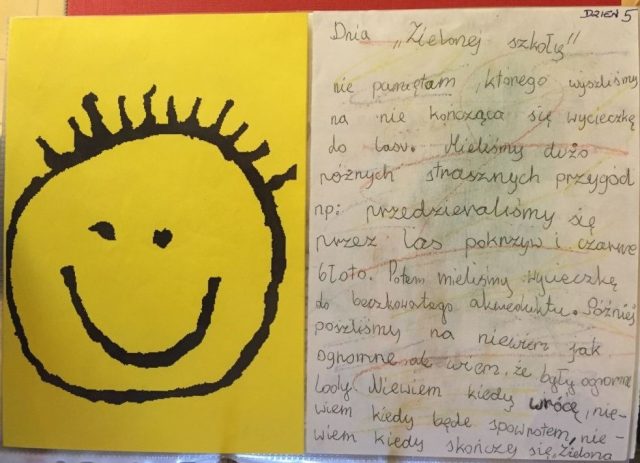 DZIEŃ 5
Dnia „Zielonej szkoły"
nie pamiętam którego wyszliśmy
na nie kończącą się wycieczkę
do lasu. Mieliśmy dużo
różnych strasznych przygód
np: przedzieraliśmy się
przez las pokrzyw i czarne
błoto. Potem mieliśmy wycieczkę
do beczkowatego akweduktu. Później
poszliśmy na niewiem jak
ogromne ale wiem, że były ogromne
lody. Niewiem kiedy wrócę, nie-
wiem kiedy będe spowrotem, nie-
wiem kiedy skończy się, Zielona